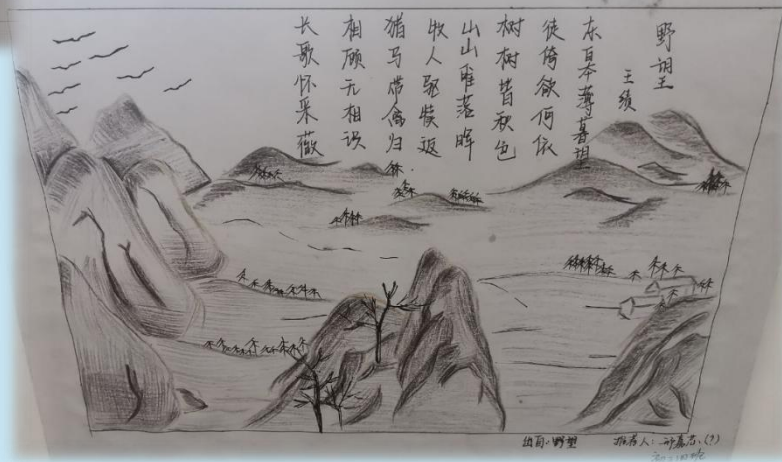 野望
王绩
东皋薄暮望
徙倚欲何依
树树皆秋色
山山唯落晖
牧人驱犊返
猎马带禽归
相顾无相识
长歌怀采薇
出自:野望
推荐人: